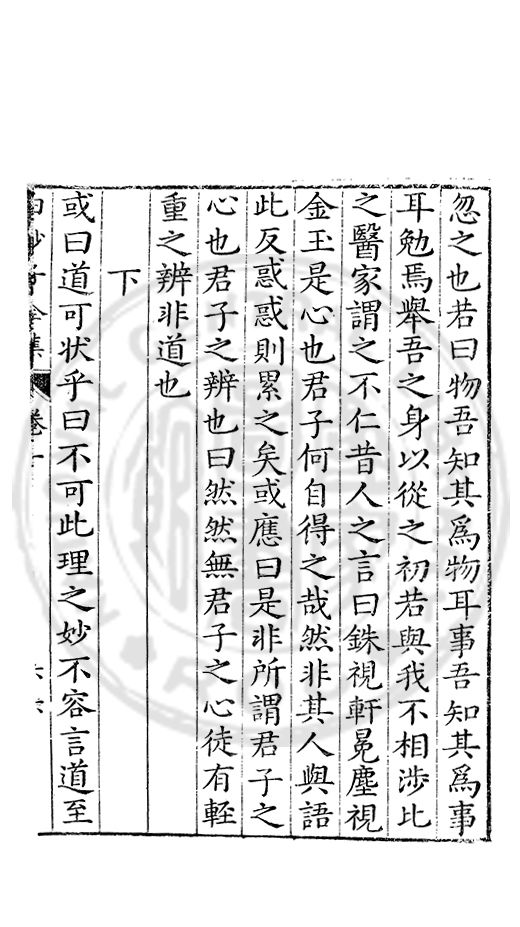 忽之也若曰物吾知其爲物耳事吾知其爲事
耳勉焉舉吾之身以從之初若與我不相涉比
之醫家謂之不仁昔人之言曰銖視軒冕塵視
金玉是心也君子何自得之哉然非其人與語
此反惑惑則累之矣或應曰是非所謂君子之
心也君子之辨也曰然然無君子之心徒有輕
重之辨非道也
下
或曰道可狀乎曰不可此理之妙不容言道至
白沙子全集 卷一